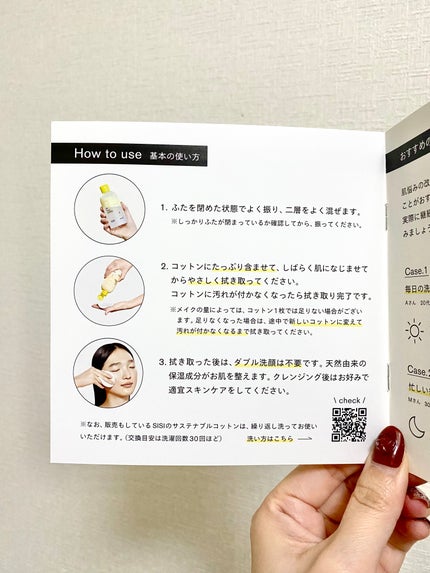 How to use 基本の使い方
1. ふたを閉めた状態でよく振り、二層をよく混ぜます。
※しっかりふたが閉まっているか確認してから、振ってください。
2. コットンにたっぷり含ませて、しばらく肌になじませて
からやさしく拭き取ってください。
コットンに汚れが付かなくなったら拭き取り完了です。
※メイクの量によっては、コットン1枚では足りない場合がござい
ます。足りなくなった場合は、途中で新しいコットンに変えて
汚れが付かなくなるまで拭き取ってください。
3. 拭き取った後は、ダブル洗顔は不要です。天然由来の
保湿成分がお肌を整えます。クレンジング後はお好みで
適宜スキンケアをしてください。
\ check /
※なお、販売もしているSISIのサステナブルコットンは、繰り返し洗ってお使い
いただけます。(交換目安は洗濯回数30回ほど)
洗い方はこちら
おすすめの
肌悩みの改
ことがおす
実際に継続
みましょう
Case.1
毎日の洗
Aさん 20代
Case.2
忙しい
Mさん 30